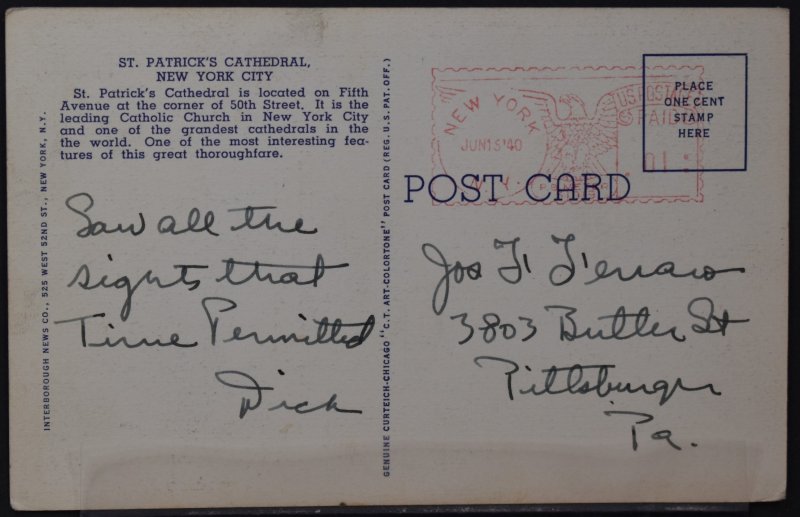 ST. PATRICK'S CATHEDRAL,
NEW YORK CITY
St. Patrick's Cathedral is located on Fifth
Avenue at the corner of 50th Street. It is the
leading Catholic Church in New York City
and one of the grandest cathedrals in the
the world. One of the most interesting fea-
tures of this great thoroughfare.
Saw all the
sights that
Time Permitted
Dick
INTERBOROUGH NEWS CO., 525 WEST 52ND ST., NEW YORK, N.Y.
GENUINE CURTEICH-CHICAGO "C.T. ART-COLORTONE" POST CARD (REG. U.S. PAT. OFF.)
NEW YORK
JUN 15 '40
N.Y.
U.S. POSTAGE
PAID
.01
PLACE
ONE CENT
STAMP
HERE
POST CARD
Jos F. Ferraro
3803 Butler St
Pittsburgh
Pa.